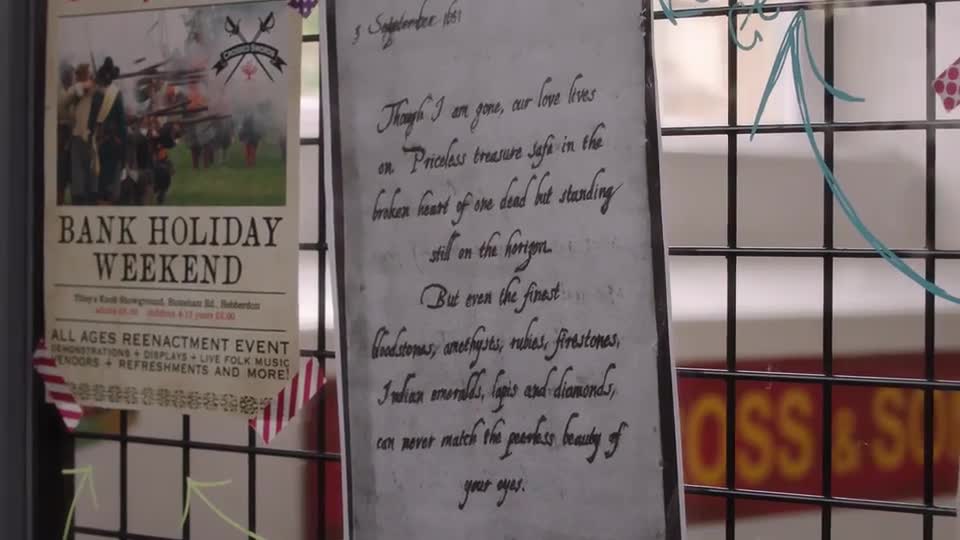 CROSSED SWORDS
BANK HOLIDAY
WEEKEND
Tilney's Knoll Showground, Stoneham Rd, Hebberdon
adults £8.50 children 4-15 years £5.00
ALL AGES REENACTMENT EVENT
DEMONSTRATIONS + DISPLAYS + LIVE FOLK MUSIC
VENDORS + REFRESHMENTS AND MORE!
3 September 1651
Though I am gone, our love lives
on. Priceless treasure safe in the
broken heart of one dead but standing
still on the horizon.
But even the finest
bloodstones, amethysts, rubies, firestones,
Indian emeralds, lapis and diamonds,
can never match the peerless beauty of
your eyes.
OSS & SO